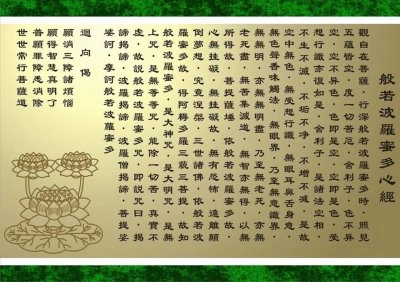 般若波羅蜜多心經
觀自在菩薩．行深般若波羅蜜多時．照見
五蘊皆空．度一切苦厄．舍利子．色不異
空．空不異色．色即是空．空即是色．受
想行識．亦復如是．舍利子．是諸法空相．
不生不滅．不垢不淨．不增不減．是故
空中無色．無受想行識．無眼耳鼻舌身意．
無色聲香味觸法．無眼界．乃至無意識界
無無明．亦無無明盡．乃至無老死．亦無
老死盡．無苦集滅道．無智亦無得．以無
所得故．菩提薩埵．依般若波羅蜜多故．
心無罣礙．無罣礙故．無有恐怖．遠離顛
倒夢想．究竟涅槃．三世諸佛．依般若波
羅蜜多故．得阿耨多羅三藐三菩提．故知
般若波羅蜜多．是大神咒．是大明咒．是無
上咒．是無等等咒．能除一切苦．真實不
虛．故說般若波羅蜜多咒．即說咒曰．揭
諦揭諦．波羅揭諦．波羅僧揭諦．菩提娑
婆訶．摩訶般若波羅蜜多
迴向偈
願消三障諸煩惱
願得智慧真明了
普願罪障悉消除
世世常行菩薩道